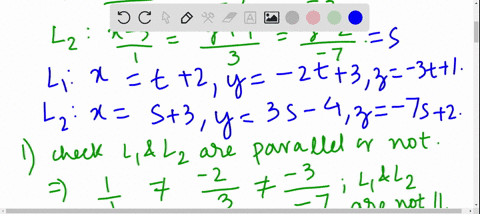 L₂: x-3/1 = y+4/3 = z-2/-7 = s
L₁: x = t+2, y = -2t+3, z = -3t+1.
L₂: x = s+3, y = 3s-4, z = -7s+2.
1) check L₁ & L₂ are parallel or not.
⇒ 1/1 ≠ -2/3 ≠ -3/-7 ; L₁ & L₂
are not ||.